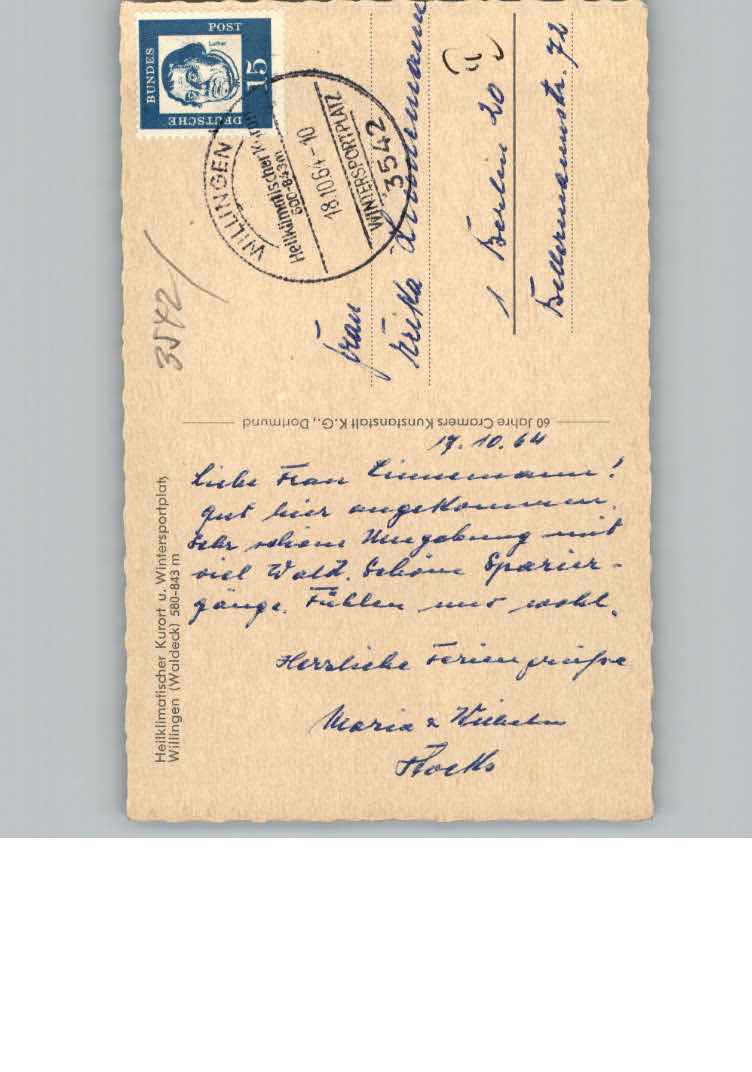 Heilklimatischer Kurort u. Wintersportplatz
Willingen (Waldeck) 580-843 m
17. 10. 64
Liebe Frau Linnemann!
gut hier angekommen.
Sehr schöne Umgebung mit
viel Wald. Schöne Spazier-
gänge. Fühlen uns wohl.
Herzliche Feriengrüße
Maria & Wilhelm
60 Jahre Cramers Kunstanstalt K.G., Dortmund
DEUTSCHE
BUNDES
POST
15
Luther
WILLINGEN
Heilklimatischer
600-843m
18.10.64-10
WINTERSPORTPLATZ
3542
3542
Frau
Erika Linnemann
1 Berlin 20
Bellermannstr. 72